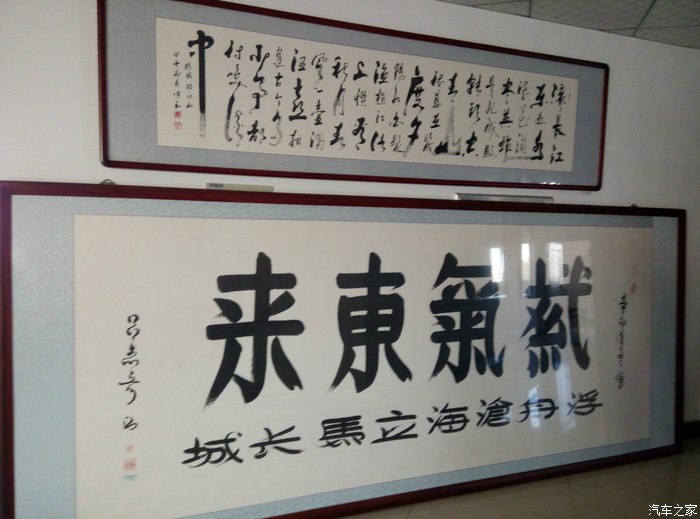 滚长江
东逝水
浪花淘
尽英雄
是非成败
转头空
青山
依旧在几
度夕
阳红白发
渔樵江渚
上惯看
秋月春
风一壶浊
酒喜相
逢古今多
少事都
付笑谈
中
紫氣東来
浮舟滄海立馬长城
汽车之家